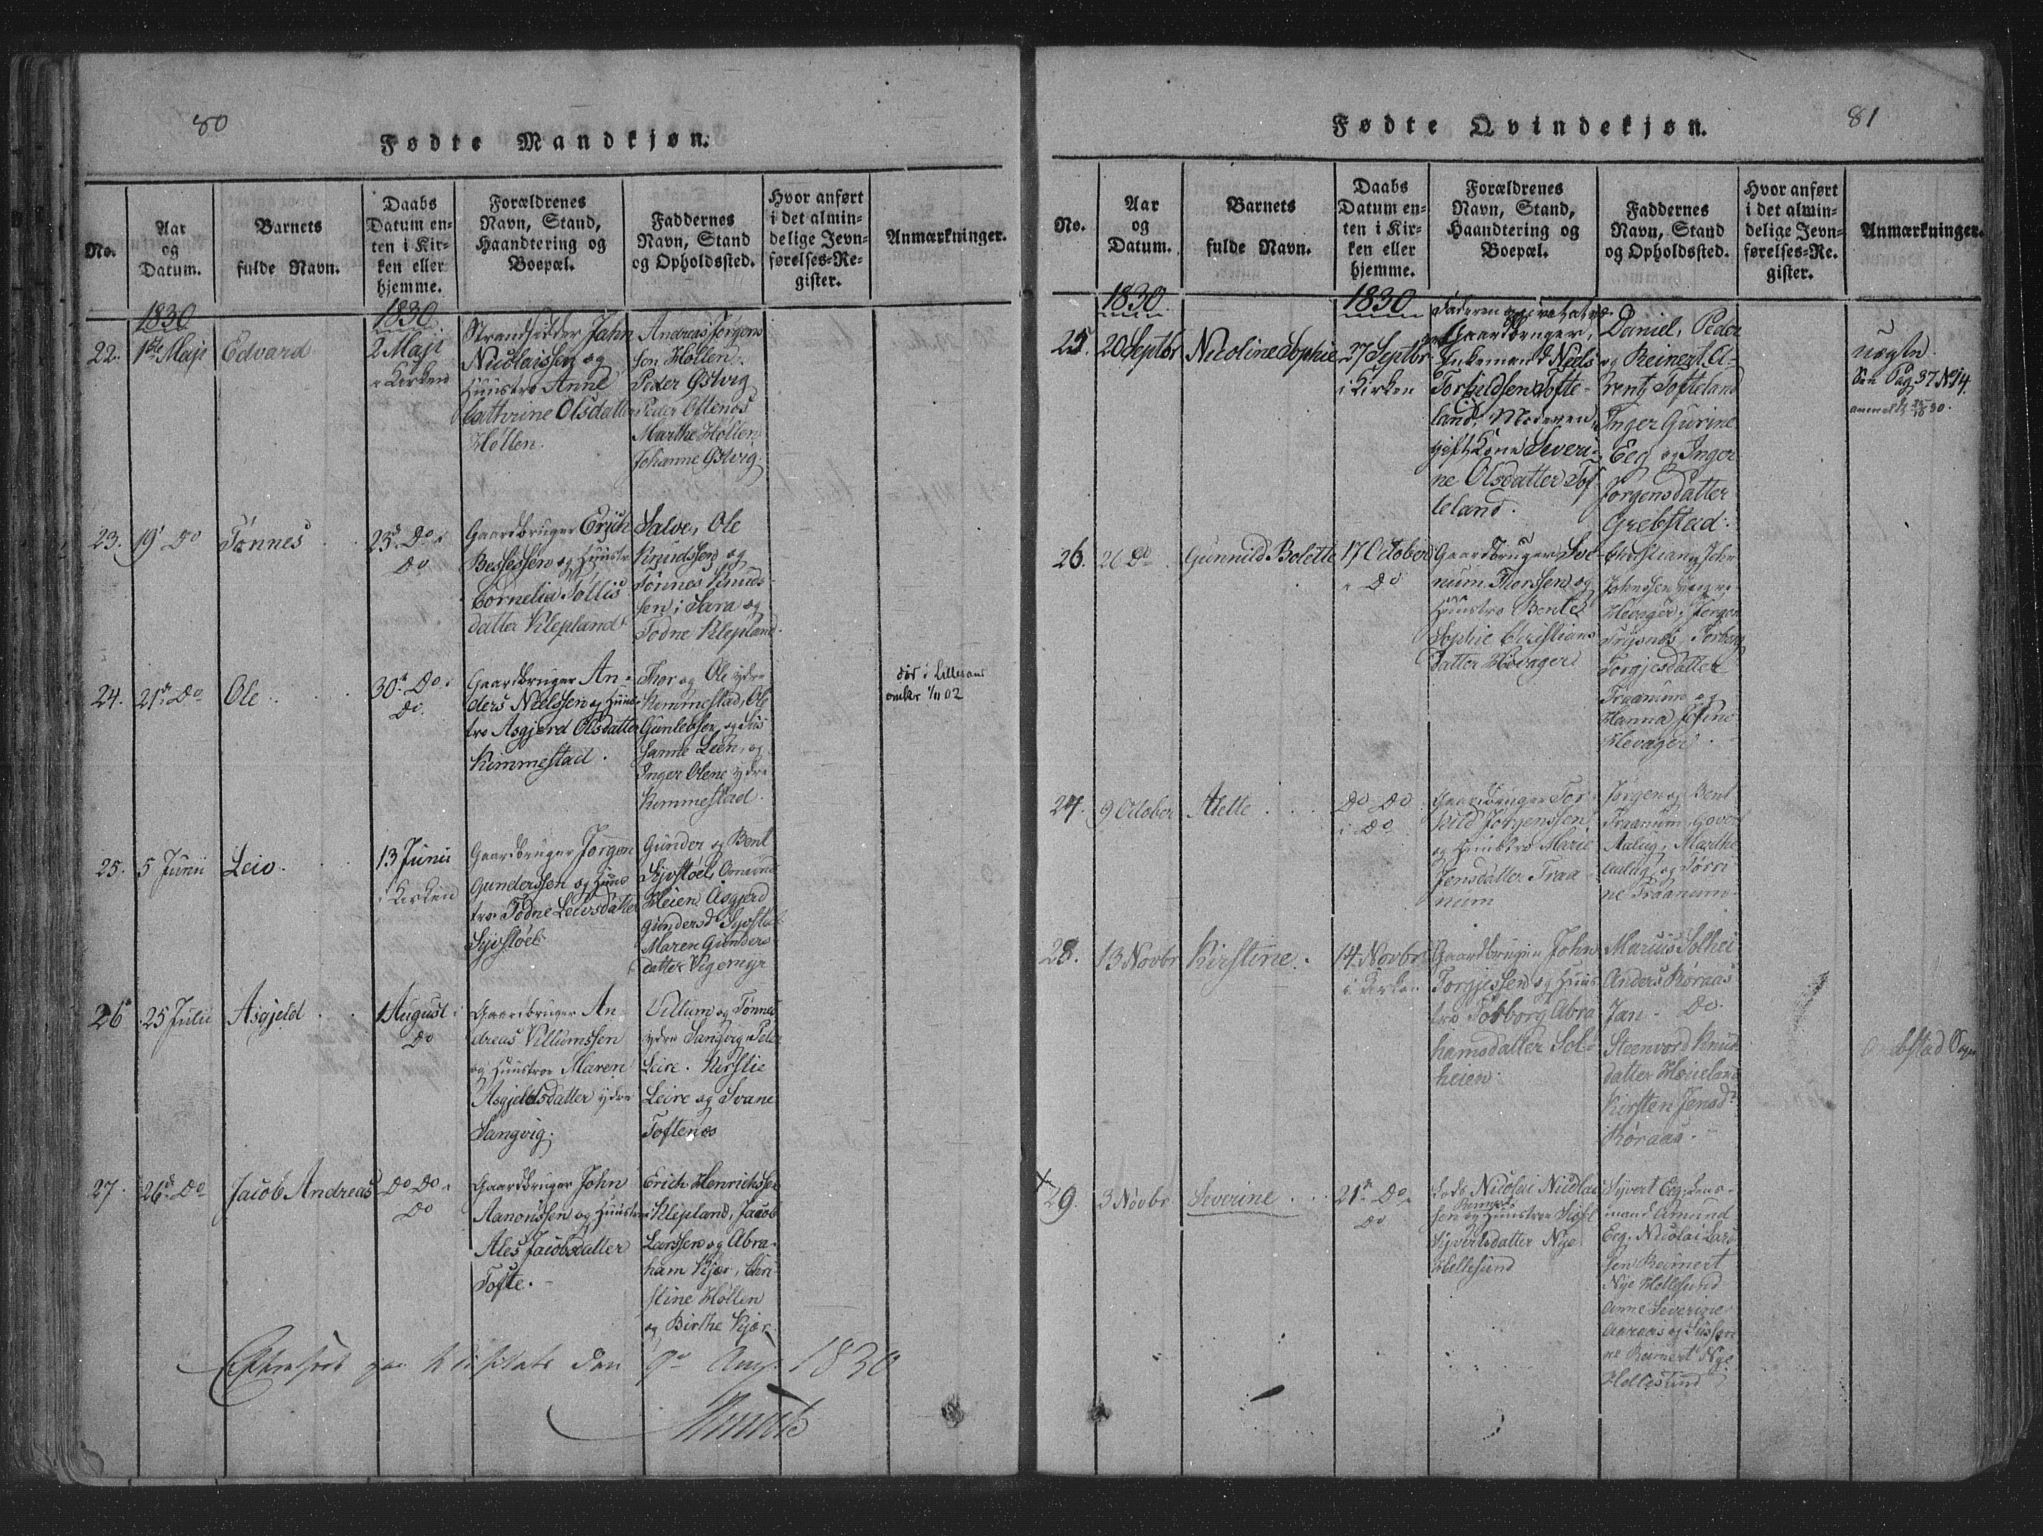 80
Fødte Mandkjøn.
No.
Aar
og
Datum.
Barnets
fulde Navn.
Daabs
Datum en-
ten i Kir-
ken eller
hjemme.
Forældrenes
Navn, Stand,
Haandtering og
Boepæl.
Faddernes
Navn, Stand
og Opholdssted.
Hvor anført
i det almin-
delige Jevn-
førelses-Re-
gister.
Anmærkninger.
1830
1830
22. 1ste Maji Edvard
2 Maji
i Kirken
Strandsidder Jahn
Nicolaissen og
Huustro Anne
Cathrine Olsdatter
Høllen.
Andreas Jørgens
sen Høllen,
Peder Østvig
Peder Oftenes
Marthe Høllen
Johanne Østvig.
23. 19 Do Tønnes
23d Do i
Do
Gaardbruger Erich
Bessessen og Huustro
Cornelia Tollis
datter Klepland
Salve, Ole
Knudssen og
Tønnes Knud-
sen, Sara og
Todne Klepland.
24. 21de Do Ole
30te Do i
Do.
Gaardbruger An-
ders Nielssen og Huus-
tro Asgjerd Olsdatter
Kimmestad.
Thor og Ole ydre
Kimmestad, Ole
Gunlebsen og Sus
sanne Leen, og
Inger Olene ydre
Kimmestad.
død i Lillesand
omkr 1/11 02
25. 5 Junii Leiv.
13 Junii
i Kirken
Gaardbruger Jørgen
Gunderssen og Huus
tro Todne Leivsdatter
Syvstøel
Gunder og Bent
Syvstøel, Omund
Heien, Asgjerd
Gundersd Syvstøl
Maren Gunders
datter Vigemyr
26 25 Julii Asgjeld
1 August i
Do
Gaardbruger An-
dreas Villumssen
og Huustroe Maren
Asgjeldsdatter ydre
Langvig.
Villum og Tønnes
ydre Langvig, Peder
Leire. Kirstie
Leire og Svane
Toftenes
27. 26de Do Jacob Andreas
Do Do i
Do
Gaardbruger John
Aanonssen og Huustroe
Ales Jacobsdatter
Tofte.
Erich Henrichsen
Klepland, Jacob
Larssen og Abra-
ham Kjær, Chri-
stine Høllen
og Birthe Kjær
Efterseet paa den 9de Aug. 1830
81
Fødte Qvindekjøn.
No.
Aar
og
Datum.
Barnets
fulde Navn.
Daabs
Datum en-
ten i Kir-
ken eller
hjemme.
Forældrenes
Navn, Stand,
Haandtering og
Boepæl.
Faddernes
Navn, Stand
og Opholdssted.
Hvor anført
i det almin-
delige Jevn-
førelses-Re-
gister.
Anmærkninger.
1830.
1830
25. 20 Septbr Nicoline Sophie
27 Septbr
i Kirken
Faderen
Gaardbruger,
Enkemand Niels
Torkildsen Tofte-
land, Moderen
gift Kone Severi-
ne Olsdatter Tof-
teland.
Daniel, Peder
og Reinert A-
rent Tofteland
Inger Gurine
Eeg og Inger
Jørgensdatter
Grebstad.
uægte
See Pag 37 No 4.
26. 26 Do Gunnild Bolette
17 October
i Do
Gaardbruger Sal-
num Thorssen og
Huustro Bente
Sophie Christians
datter Høvager
Christian, John
Høvager, Jørgen
Torgjesdatter
Traanum og
Hanna Josine
Høvager.
27. 9 October Alette
Do Do
i Do
Gaardbruger Tor-
kild Jørgenssen
og Huustro Marie
Jensdatter Traa-
num
Jørgen og Bent
Traanum, Govert
Aalug, Marthe
Aalug og Tørri-
ne Traanum.
28. 13 Novbr Kirstine.
14 Novbr
i Kirken
Gaardbruger John
Torgjessen og Huus
tro Tobborg Abra
hamsdatter Sol-
heien.
Marius Solhei
Anders Røraas
Jan Do.
Steenvord Knud
datter Høieland
Kirsten Jensd.
Røraas.
Sogn
X
29. 3 Novbr Severine
21de Do
Do
Lods Nicolai Nicolai
sen Reimert og Huustroe
Syvertsdatter Nye
Hellesund
Syvert Eeg, Lens-
mand Amund
Eeg. Nicolai Lars
sen Reimert
Nye Hellesund
Anne Severine
Aaraas og Susan
ne Reimert Nye
Hellesund